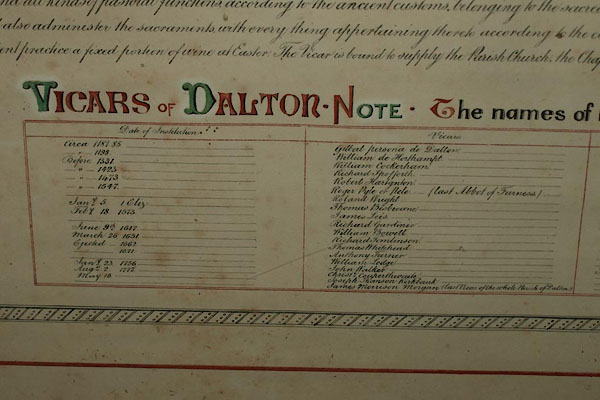 and all kinds of pastoral functions, according to the ancient customs, belonging to the sacred
also administer the sacraments, with every thing appertaining thereto according to the
practice a fixed portion of wine at Easter. The Vicar is bound to supply the Parish Church, the Chap
VICARS OF DALTON · NOTE · The names of
Date of Institution
Vicars
Circa 1181 85
" 1198
Before 1331
" 1423
" 1473
" 1547
Jany 5 1 Eliz
Feby 18 1575
June 9th 1617
March 26 1631
Ejected 1662
Jany 23 1756
Augt 2 1772
May 16
Gilbert persona de Dalton
William de
William Cockerham
Richard Spofforth
Robert
Roger Pyle or Pele (last Abbot of Furness)
Roland Wright
Thomas
James Leis
Richard Gardiner
William
Richard Tomlinson
Thomas Whitehead
Anthony Turner
William Lodge
John Walker
Christr Couperthwaite
Joseph Thomson Kirkbank
James Morrison Morgan (last Vicar of the whole Parish of Dalton)